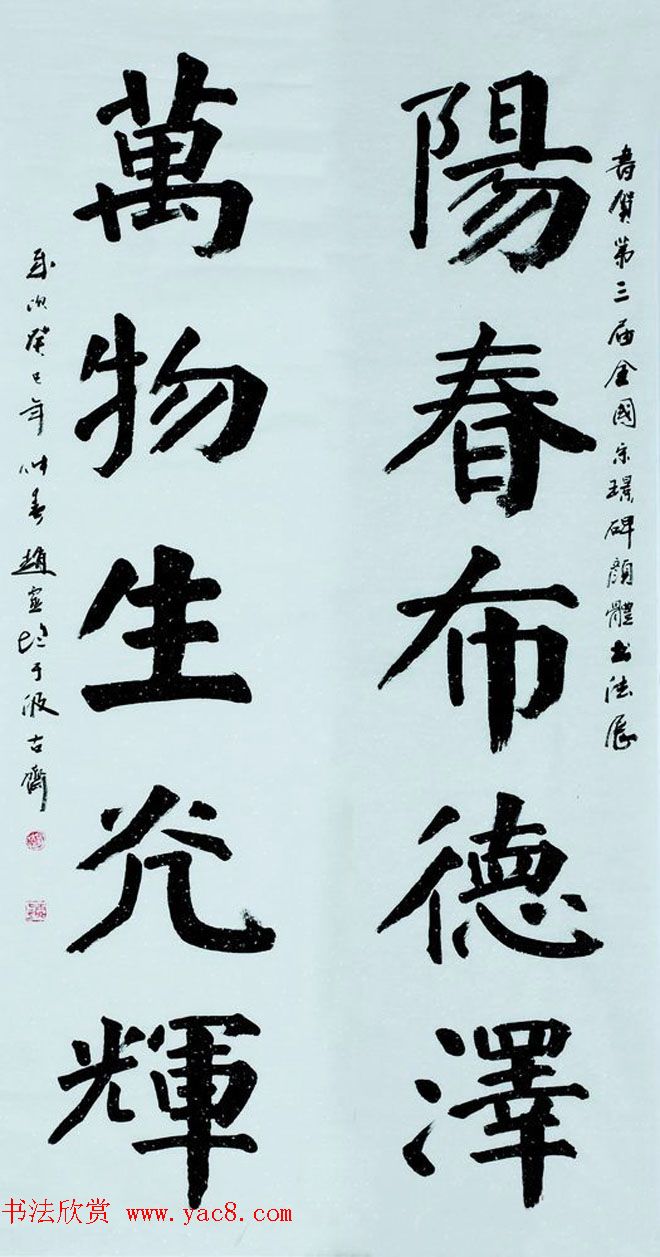 書賀第三届全國宋璟碑顏體書法展
陽春布德澤
萬物生光輝
歲次癸巳年仲春趙 于汲古齋
书法欣赏 www.yac8.com